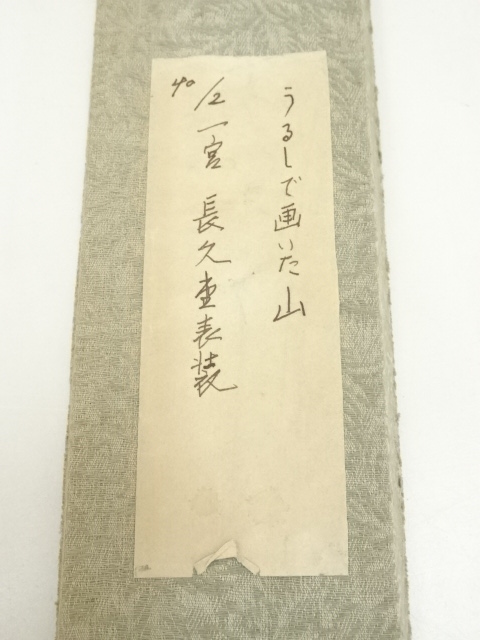 うるしで画いた山
40 12 一宮 長久堂表装